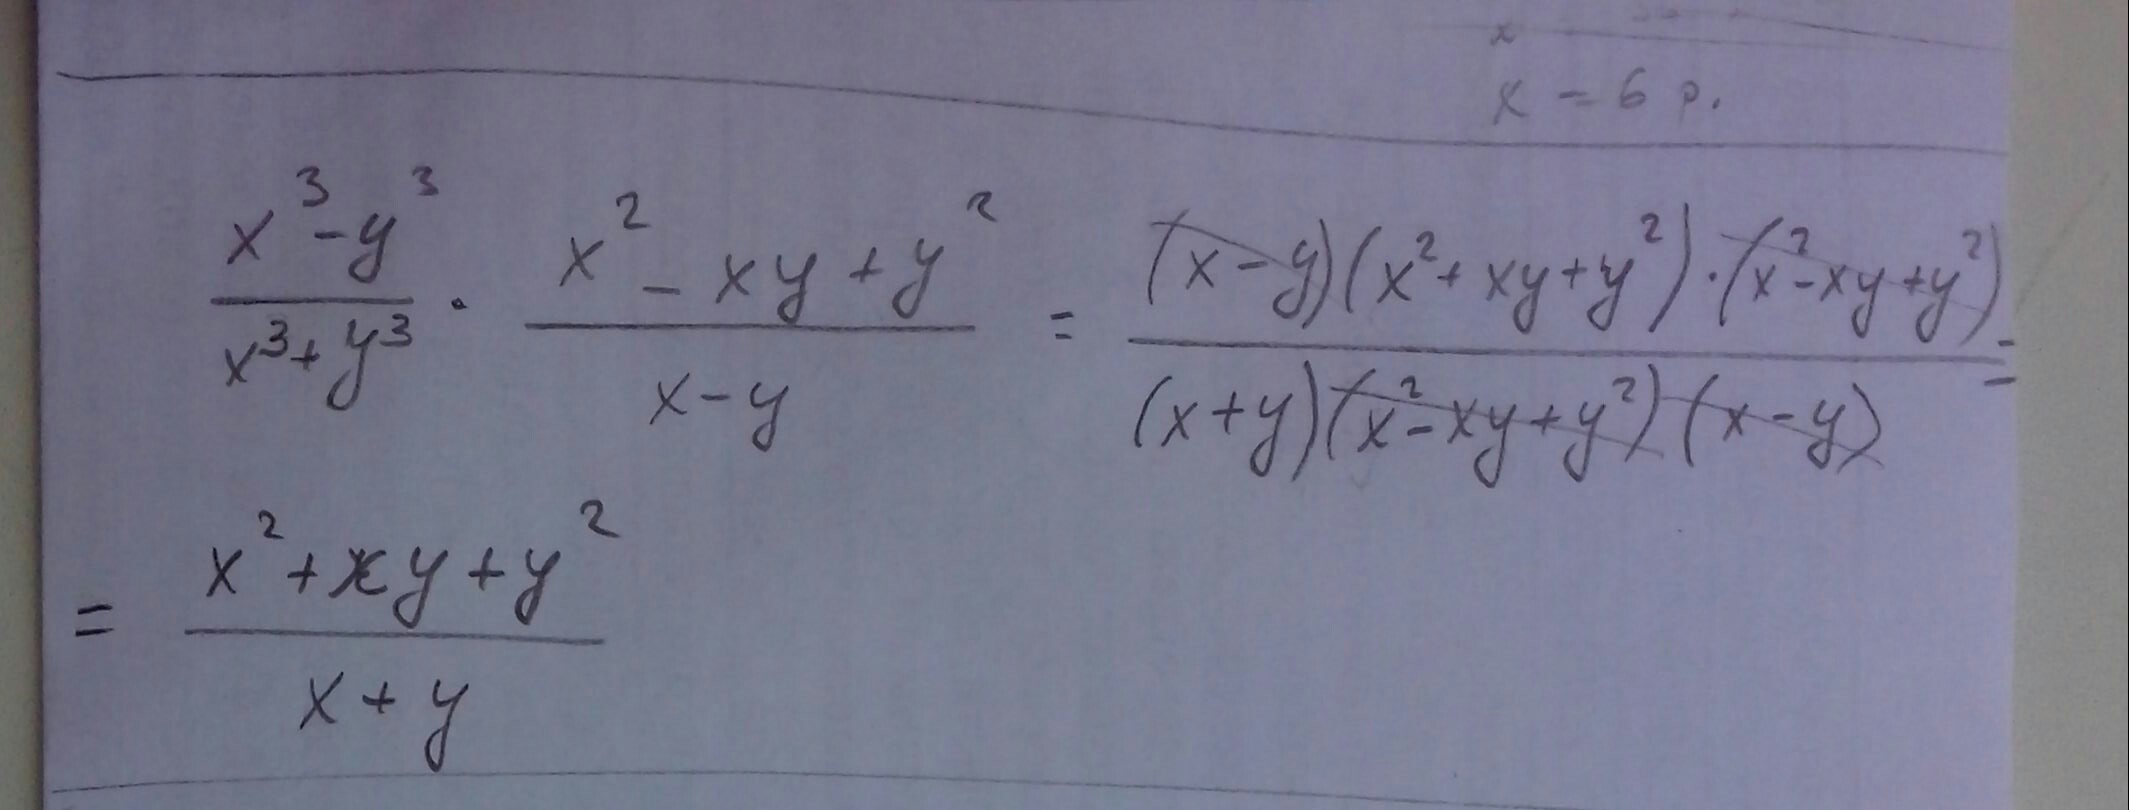 x
x = 6 р.
x³-y³/x³+y³ · x²-xy+y²/x-y = (x-y)(x²+xy+y²)·(x²-xy+y²)/(x+y)(x²-xy+y²)(x-y) =
= x²+xy+y²/x+y